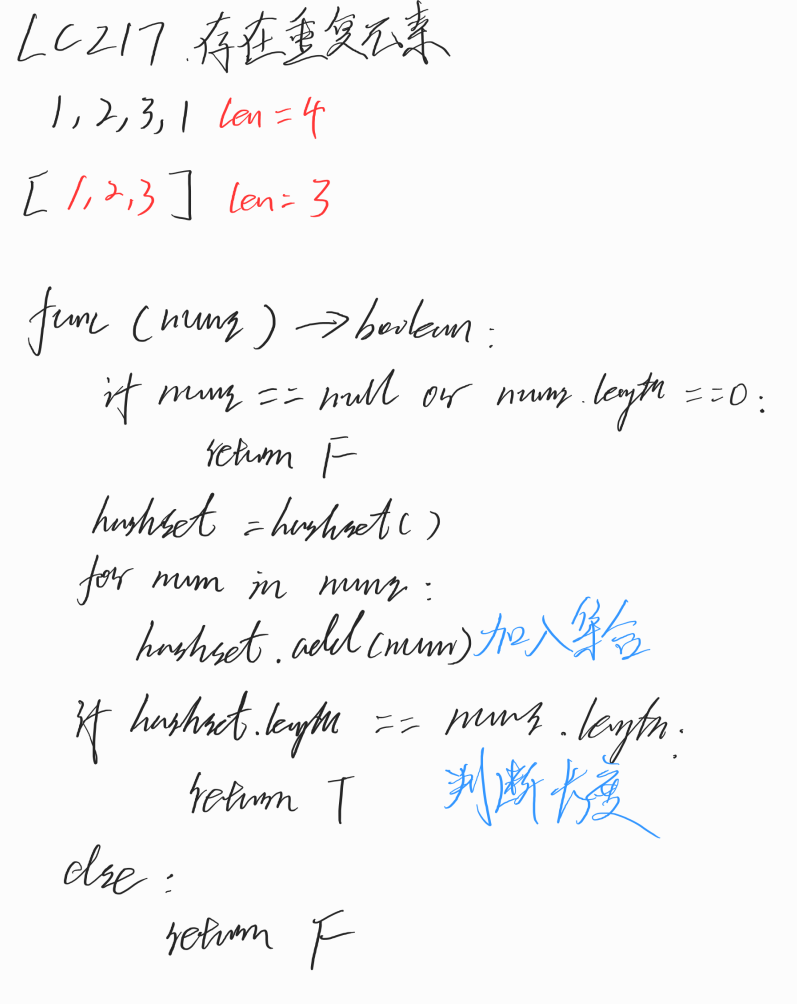 LC217.存在重复元素
1,2,3,1 len=4
[1,2,3] len=3
func (nums) → boolean:
if nums == null or nums.length ==0:
return F
hashset =hashset()
for num in nums:
hashset.add(num) 加入集合
if hashset.length == nums.length:
return T 判断长度
else:
return F